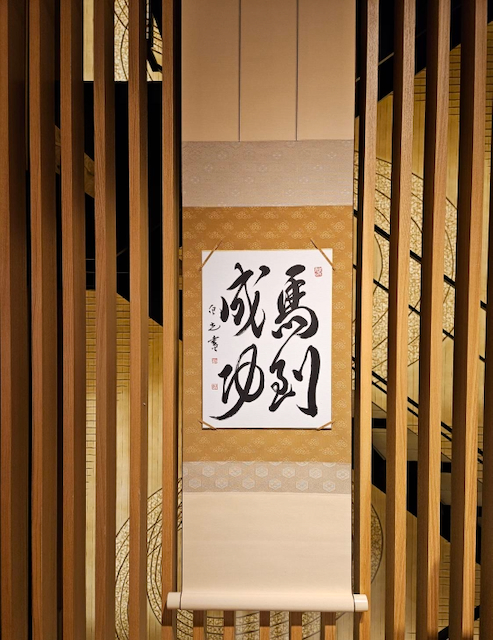 馬到
成功